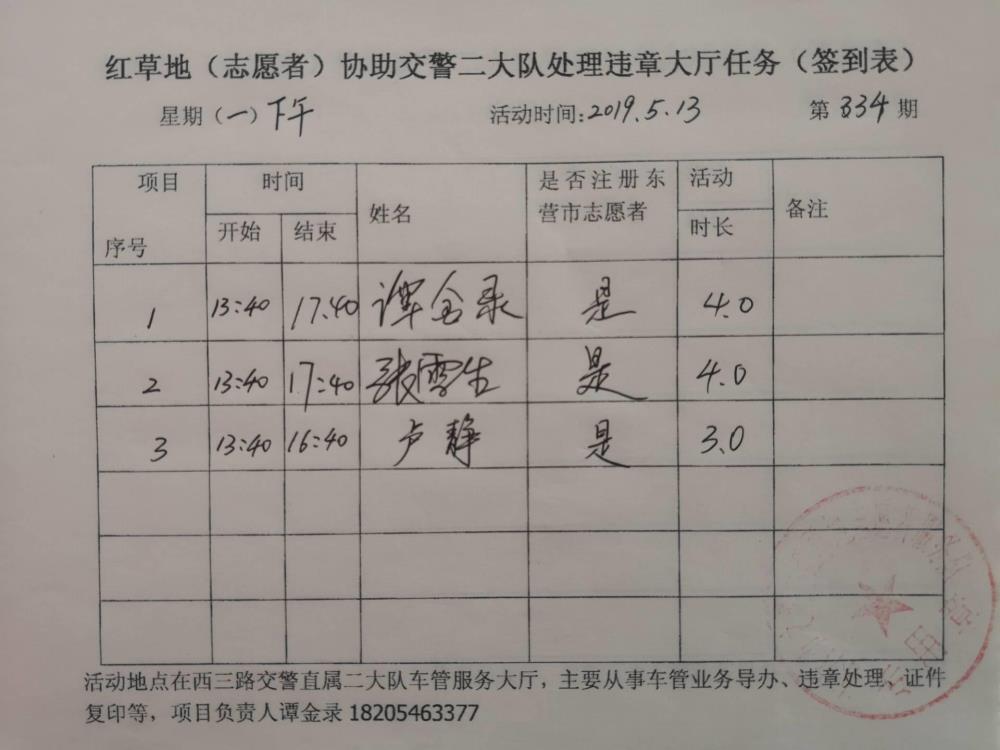 红草地（志愿者）协助交警二大队处理违章大厅任务（签到表）
星期（一）下午 活动时间:2019.5.13 第 334 期
项目 时间 姓名 是否注册东 活动 备注
营市志愿者
序号 开始 结束 时长
1 13:40 17:40 谭金录 是 4.0
2 13:40 17:40 张雪生 是 4.0
3 13:40 16:40 卢静 是 3.0
活动地点在西三路交警直属二大队车管服务大厅，主要从事车管业务导办、违章处理、证件
复印等，项目负责人谭金录 18205463377